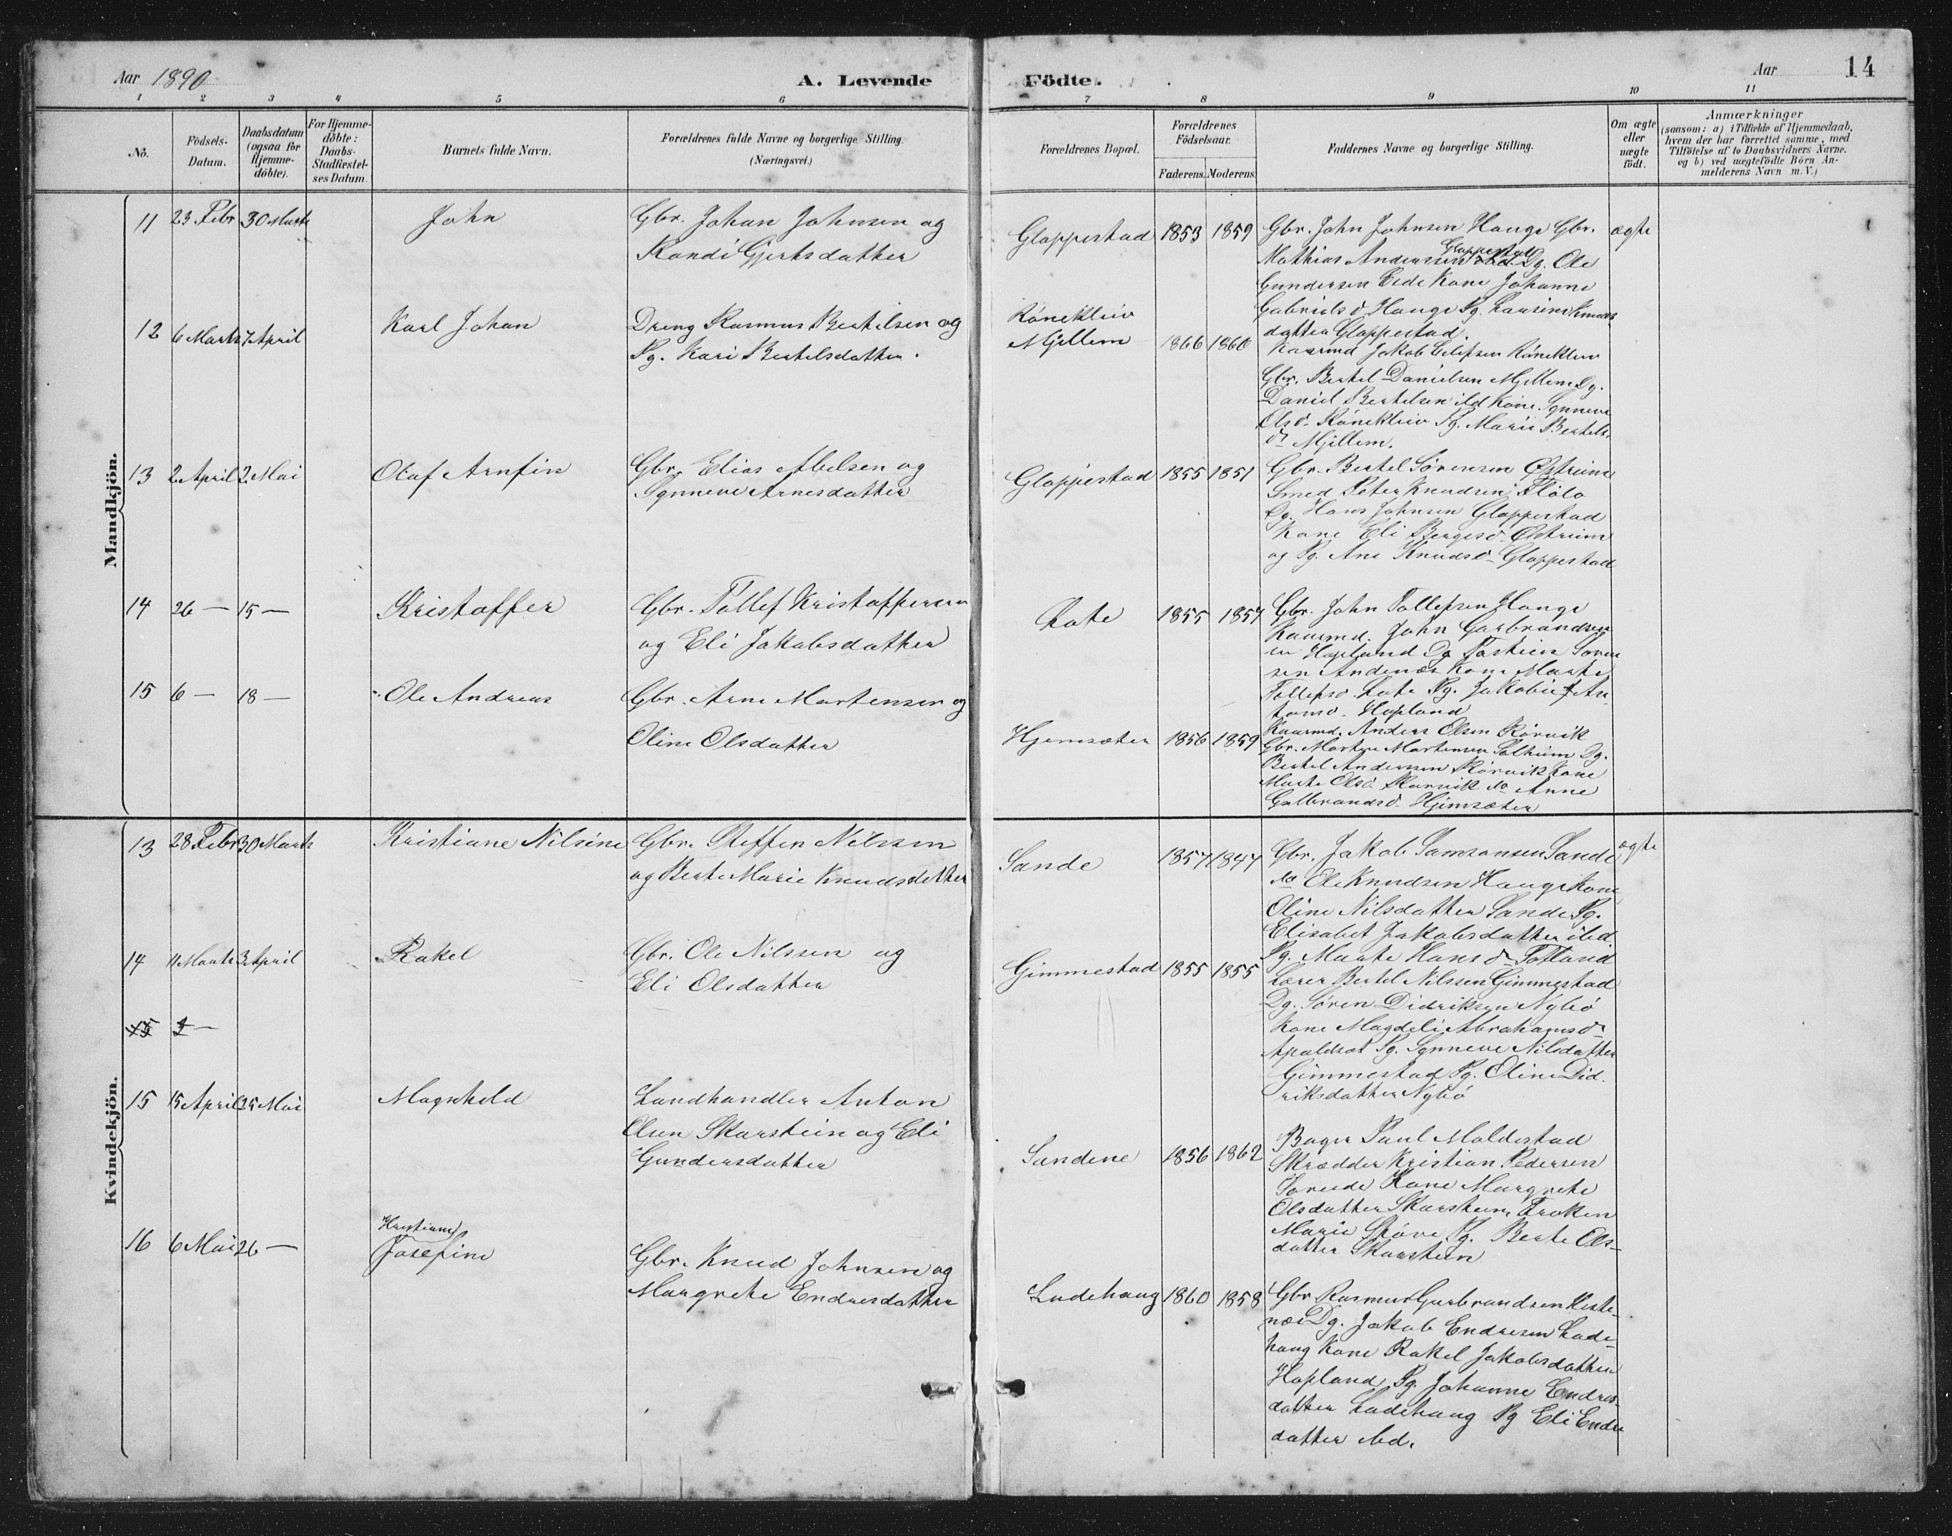 Aar 1890
A. Levende
Födte.
Aar
14
1 2 3 4 5 6 7 8 9 10 11
No.
Födsels-
Datum.
Daabsdatum
(ogsaa for
Hjemme-
döbte).
For Hjemme-
döbte:
Daabs-
Stadfæstel-
ses Datum.
Barnets fulde Navn.
Forældrenes fulde Navne og borgerlige Stilling.
(Næringsvei.)
Forældrenes Bopæl.
Forældrenes
Födselsaar.
Faderens. Moderens.
Faddernes Navne og borgerlige Stilling.
Om ægte
eller
uægte
födt.
Anmærkninger
(saasom: a) i Tilfælde af Hjemmedaab,
hvem der har forrettet samme, med
Tilföielse af to Daabsvidners Navne,
og b) ved uægtefödte Börn An-
melderens Navn m.V.)
Mandkjön.
11 23 Febr 30 Marts
John
Gbr. Johan Johnsen og
Randi Gjertsdatter
Gloppestad 1853 1859
Gbr. John Johnsen Hauge Gbr.
Mathias Anderssen Gloppestad Dg. Ole
Gundersen Eide Kone Johanne
Gabrielsd Hauge Pg. Laurine
datter Gloppestad.
ægte
12 6 Marts 7 April
Karl Johan
Dreng Rasmus Bertilsen og
Pg. Kari Bertelsdatter.
Rönekleiv
Mjellem 1866 1860
Kaarmd Jakob Eilefsen Rönekleiv
Gbr. Bertel Danielsen Mjellem Dg.
Daniel Bertelsen ibd Kone Synneve
Olsdr Rönekleiv Pg. Marie Bertels-
dr Mjellem.
13 2 April 2 Mai
Olaf Arnfin
Gbr. Elias Abelsen og
Synneve Arnesdatter
Gloppestad 1855 1851
Gbr. Bertel Sörensen Östreim
Smed Peter Knudsen Flölo
Dg. Hans Johnsen Gloppestad
Kone Eli Bergesd Östreim
og Pg. Ane Knudsd Gloppestad
14 26 — 15 —
Kristoffer
Gbr. Tollef Kristoffersen
og Eli Jakobsdatter
Lote 1855 1857
Gbr. John Tollefsen Hauge
Kaarmd. John Garbrandsen
Hopland Dg Torstein Soren
sen Andenæs Kone Marte
Tollefsd. Lote Pg. Jakobine
Hopland
15 6 — 18 —
Ole Andreas
Gbr. Arne Martensen og
Oline Olsdatter
Hjemsæter 1856 1859
Kaarmd. Anders Olsen Rörvik
Gbr. Marten Martensen Solheim Dg.
Bertel Anderssen Rörvik Kone
Marte Olsd Rörvik do Anne
Gulbrandsd Hjemsæter
Kvindekjön.
13 28 Febr 30 Marts
Kristiane Nilsine
Gbr. Steffen Nilssen
og Berte Marie Knudsdatter
Sande 1857 1847
Gbr. Jakob Samsonsen Sande
do Ole Knudsen Hauge Kone
Oline Nilsdatter Sande Pg.
Elisabet Jakobsdatter ibd
Pg. Marte Hansd Totland
ægte
14 11 Marts 3 April
Rakel
Gbr. Ole Nilssen og
Eli Olsdatter
Gimmestad 1855 1855
Lærer Bertel Nilssen Gimmestad
Dg. Sören Didriksen Nybö
Kone Magdeli Abrahamsdr
Apaldset Pg. Synneve Nilsdatter
Gimmestad Pg. Oline Did-
riksdatter Nybö
15
15 15 April 25 Mai
Magnhild
Landhandler Anton
Olsen Skarstein og Eli
Gundersdatter
Sandene 1856 1862
Bager Paul Moldestad
Skrædder Kristian Pedersen
Soreide Kone Margrete
Olsdatter Skarstein Fröken
Marie Sköve Pg. Berte Ols-
datter Skarstein
16 6 Mai 26 —
Kristiane
Josefine
Gbr. Knud Johnsen og
Margrete Endresdatter
Ludehaug 1860 1858
Gbr Rasmus Garbrandsen Reste-
næs Dg. Jakob Endresen Lude-
haug Kone Rakel Jakobsdatter
Hopland Pg. Johanne Endres-
datter Ludehaug Pg Eli Endres
datter ibd.